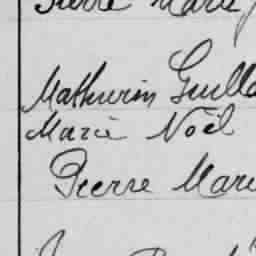 Pierre Marie
Mathurin Guilla
Marie Noël
Pierre Mari